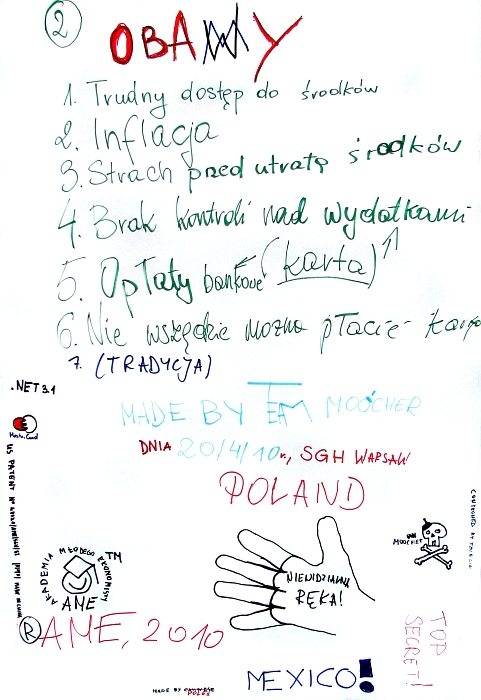 2
OBAWY
1. Trudny dostęp do środków
2. Inflacja
3. Strach przed utratą środków
4. Brak kontroli nad wydatkami
5. Opłaty bankowe (karta)
6. Nie wszędzie można płacić kartą
7. (TRADYCJA)
.NET 3.1
MADE BY TEAM MOOCHER
DNIA 20/4/10r., SGH WARSAW
POLAND
US PATENT
AKADEMIA MŁODEGO EKONOMISTY
TM
AME
® AME, 2010
NIEWIDZIALNA
RĘKA!
MOOCHER
TOP
SECRET!
MEXICO!
MADE BY
POLES